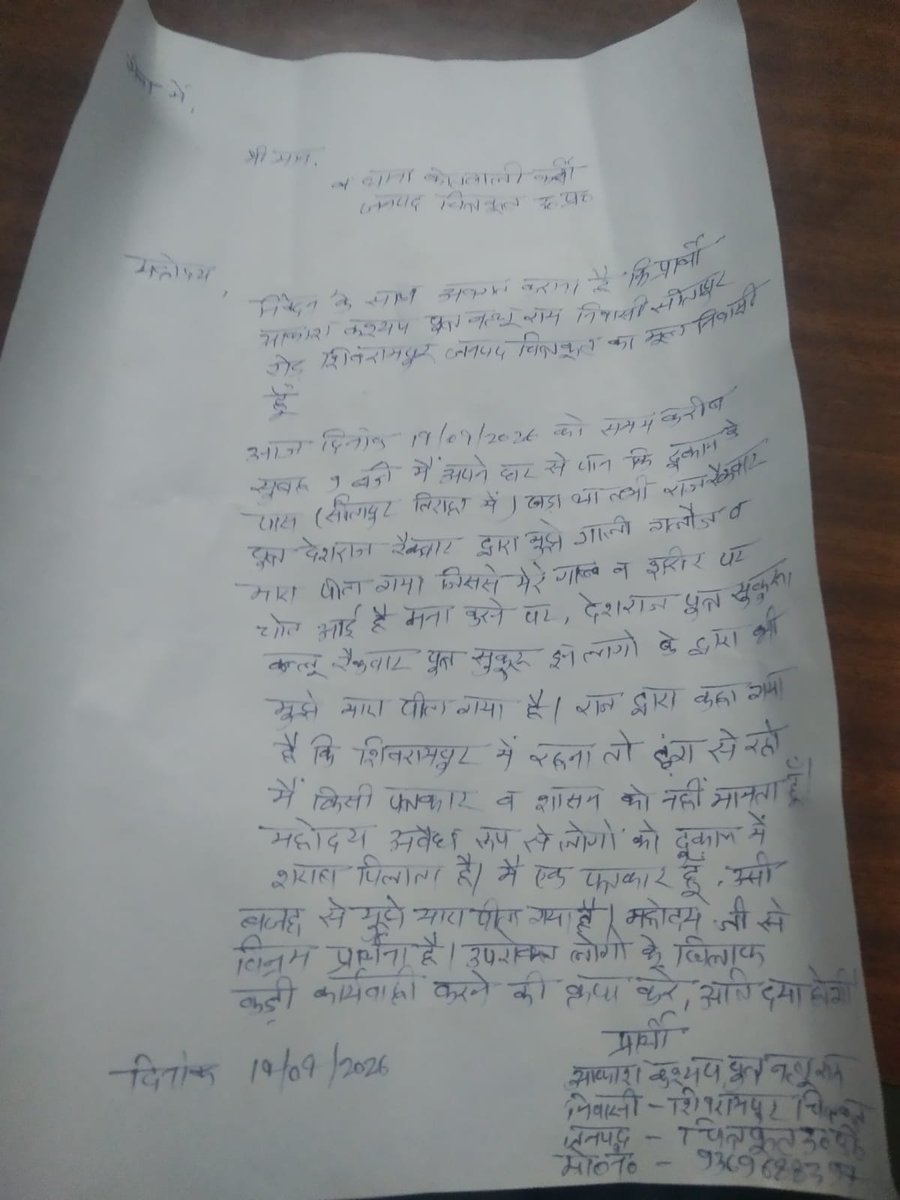 सेवा में,
श्रीमान,
थाना कोतवाली कर्वी
जनपद चित्रकूट उ.प्र.
महोदय,
निवेदन के साथ अवगत कराना है कि प्रार्थी
आकाश कश्यप पुत्र नत्थू राम निवासी सीतापुर
रोड शिवरामपुर जनपद चित्रकूट का मूल निवासी
हूँ
आज दिनांक 19/01/2026 को समय करीब
सुबह 9 बजे मैं अपने घर से पान कि दुकान के
पास (सीतापुर तिराहा में) खड़ा था तभी राज रैकवार
पुत्र देशराज रैकवार द्वारा मुझे गाली गलौज व
मारा पीटा गया जिससे मेरे गाल व शरीर पर
चोट आई है मना करने पर, देशराज पुत्र
कल्लू रैकवार पुत्र सुकुरू इन लोगो के द्वारा भी
मुझे मारा पीटा गया है। राज द्वारा कहा गया
है कि शिवरामपुर में रहना तो ढंग से रहो
मैं किसी पत्रकार व शासन को नहीं मानता हूँ।
महोदय अवैध रूप से लोगों को दुकान में
शराब पिलाता है। मै एक पत्रकार हूँ, उसी
वजह से मुझे मारा पीटा गया है। महोदय जी से
विनम्र प्रार्थना है। उपरोक्त लोगो के खिलाफ
कड़ी कार्यवाही करने की कृपा करें, अति दया होगी
प्रार्थी
दिनांक 19/01/2026
आकाश कश्यप पुत्र नत्थू राम
निवासी - शिवरामपुर चित्रकूट
जनपद - चित्रकूट उ०प्र०
मो०नं० -